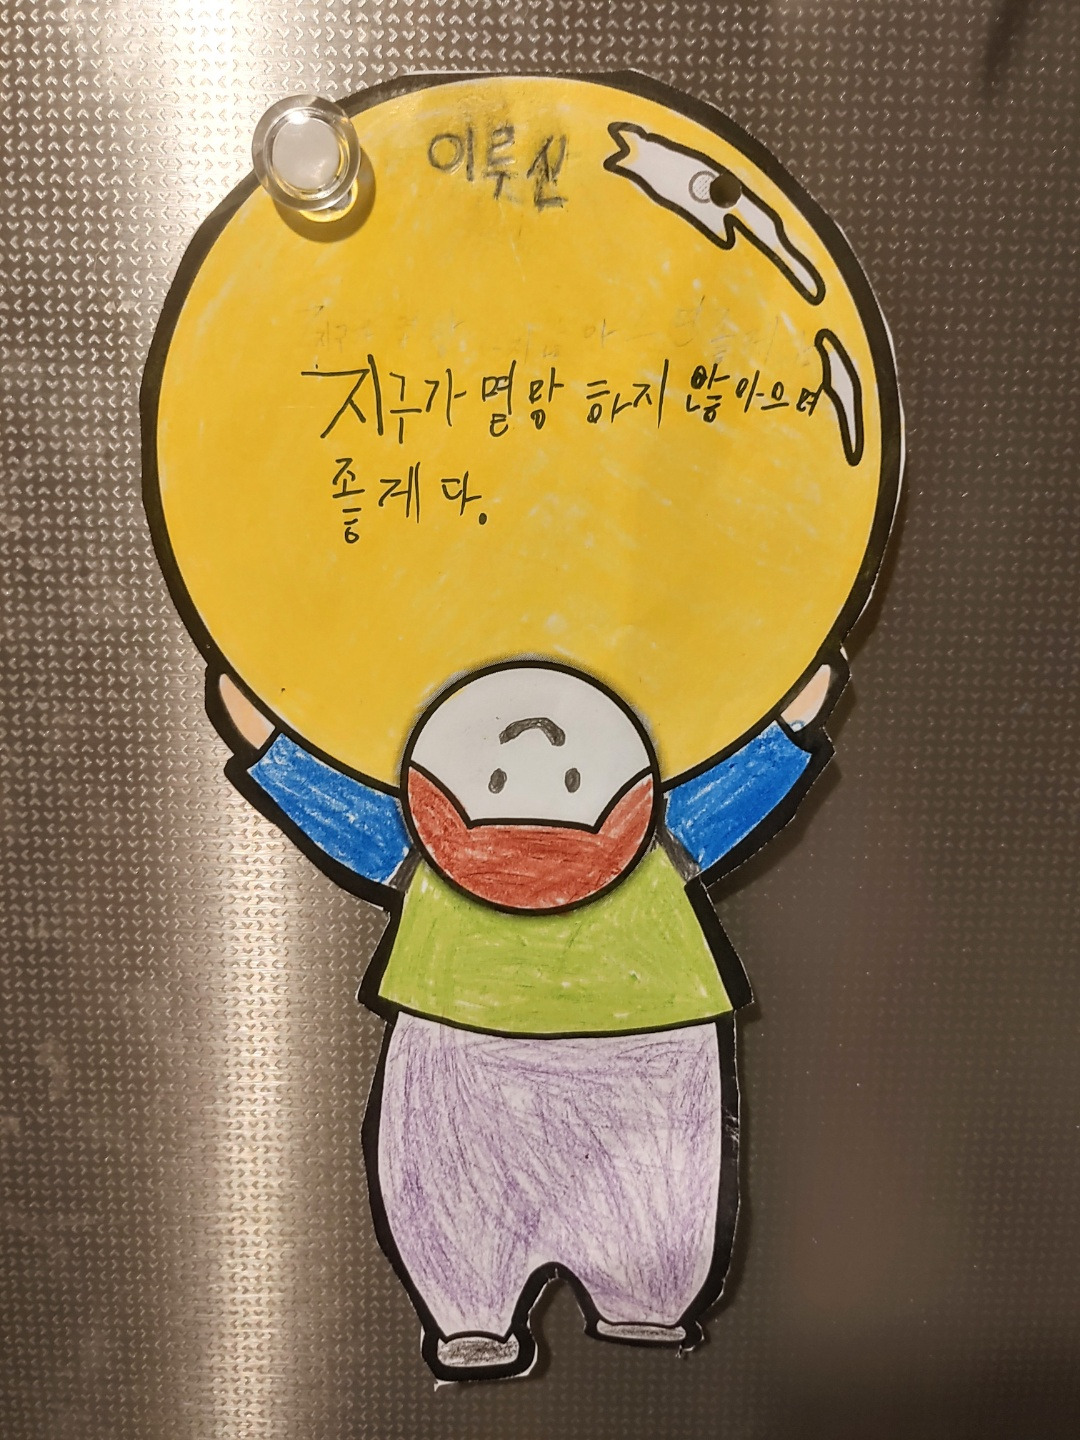 이루신
지구가 멸망 하지 않아으며
좋게 다.